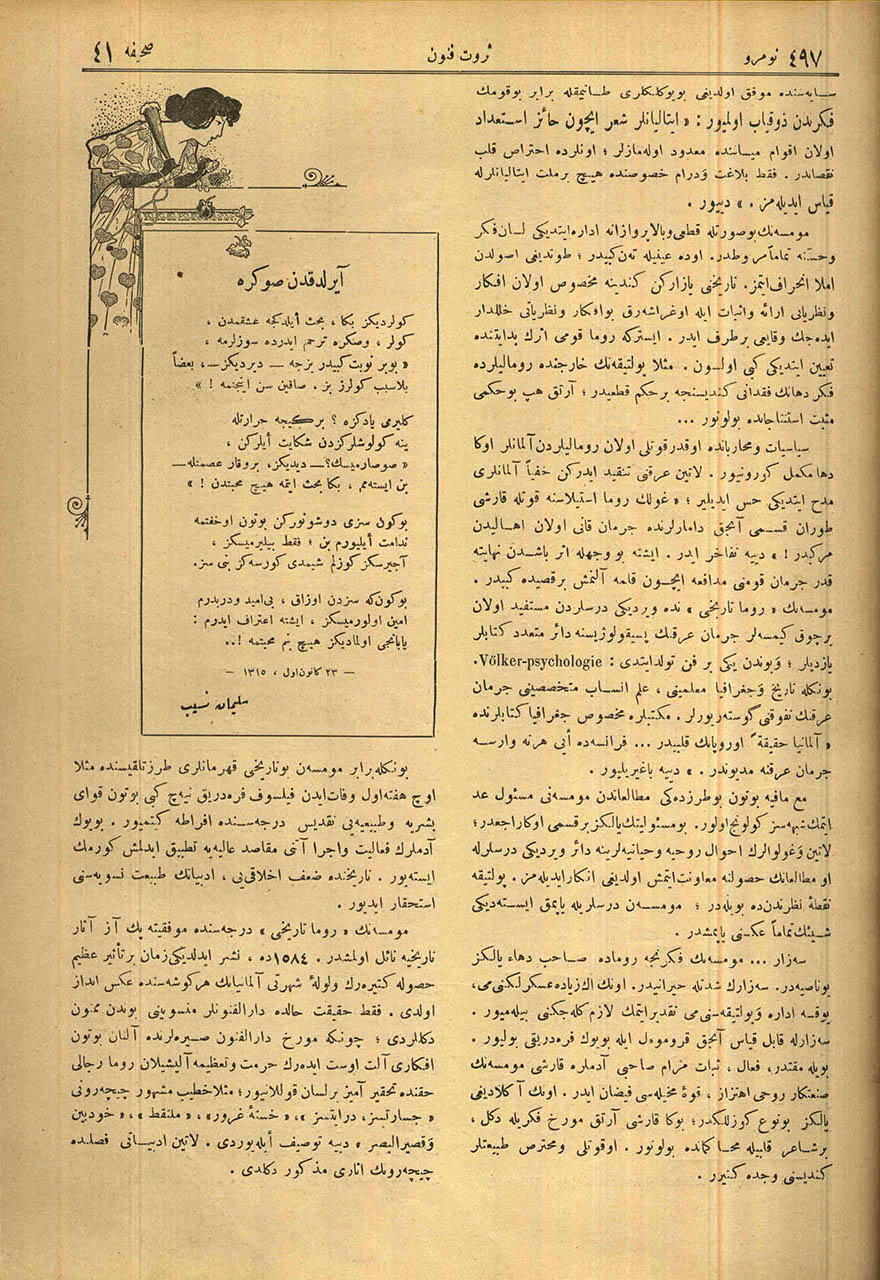 نومرو ٤٩٧
ثروت فنون
صحیفه ٤١
سایه‌سنده موفق اولدیغی بویوکلکلری طانیمقله برابر بوقومك
فکرندن ذوقیاب اولمیور : « ایتالیانلر شعر ایچون حائز استعداد
اولان اقوام میاننده معدود اوله‌مازلر ؛ اونلرده احتراص قلب
نقصاندر . فقط بلاغت ودرام خصوصنده هیچ برملت ایتالیانلرله
قیاس ایدیله‌مز . » دییور .
مومسه‌نك بوصورتله قطعی وبالاپروازانه اداره ایتدیکی لسان فکر
وحسنه تماماً مربوطدر. اوده عینیله تەن کبیدر ؛ طوتدیغی اصولدن
اصلا انحراف ایتمز. تاریخی یازارکن کندینه مخصوص اولان افکار
ونظریاتی ارائه واثبات ایله اوغراشه‌رق بوافکار ونظریاتی خللدار
ایده‌جك وقایعی برطرف ایدر . ایسترکه روما قومی اثرك بدایتنده
تعیین ایتدیکی کبی اولسون . مثلا پولتیقه‌نك خارجنده رومالیلرده
فکر دهانك فقدانی کندیسنجه برحکم قطعیدر ؛ آرتق هپ بوحکمی
مثبت استنتاجاتده بولونور ...
سیاسیات ومحارباتده اوقدرقوتلی اولان رومالیلردن آلمانلر اوکا
دها مکمل کورونیور . لاتین عرقنی تنقید ایدرکن خفیاً آلمانلری
مدح ایتدیکی حس ایدیلیر ؛ « غولك روما استیلاسنه قوتله قارشی
طوران قسمی آنجق دامارلرنده جرمان قانی اولان اهالیدن
مرکبدر ! » دییه تفاخر ایدر . ایشته بو وجهله اثر باشدن نهایته
قدر جرمان قومنی مدافعه ایچون قلمه آلنمش برقصیده کبیدر .
مومسه‌نك « روما تاریخی » نده ویردیکی درسلردن مستفید اولان
برچوق کیمسه‌لر جرمان عرقنك پسیقولوژیسنه دائر متعدد کتابلر
یازدیلر ؛ وبوندن یکی بر فن تولد ایتدی : Völker-psychologie.
بونکله تاریخ وجغرافیا معلمینی ، علم انساب متخصصینی جرمان
عرقنك تفوقنی کوسته‌ریورلر . مکتبلره مخصوص جغرافیا کتابلرنده
« آلمانیا حقیقةً اوروپانك قلبیدر ... فرانسه‌ده أیی هرنه وارسه
جرمان عرقنه مدیوندر . » دییه باغیریلیور .
مع مافیه بوتون بوطرزده‌کی مطالعاتدن مومسه‌نی مسئول عد
ایتمك شبهه‌سز کولونج اولور. بومسئولیتك یالکز برقسمی اوکا راجعدر ؛
لاتین وغولوالرك احوال روحیه وحیاتیه‌لرینه دائر ویردیکی درسلرله
او مطالعاتك حصولنه معاونت ایتمش اولدیغی انکار ایدیله‌مز . پولتیقه
نقطهٔ نظرندن ده بویله‌در ؛ مومسه‌ن درسلریله یاپمق ایسته‌دیکی
شیئك تماماً عکسنی یاپمشدر .
سه‌زار ... مومسه‌نك فکرنجه روماده صاحب دهاء یالکز
بوناصیه‌در. سه‌زارك شدتله حیرانیدر. اونك اك زیاده عسکرلکنی می،
یوقسه اداره وپولتیقه‌سنی می تقدیر ایتمك لازم کله‌جکنی بیله‌میور .
سه‌زارله قابل قیاس آنجق قرومول ایله بویوك فره‌دریقی بولیور .
بویله مقتدر، فعال ، ثبات مرام صاحبی آدملره قارشی مومسه‌نك
صنعتکار روحی اهتزاز ، قوهٔ مخیله‌سی فیضان ایدر . اونك آکلادیغی
یالکز بونوع کوزللکدر؛ بوکا قارشی آرتق مورخ فکریله دکل ،
برشاعر قلبیله محاکمانده بولونور . اوقوتلی ومحترص طبیعتلر
کندیسنی وجده کتیرر .
آیرلدقدن صوکره
کولردیکز بکا ، بحث أیلدکجه عشقمدن ،
کولر ، وصکره ترحم ایدرده سوزلرمه ،
« بوبر نوبت کبیدر بزجه — دیردیکز— ، بعضاً
بلاسبب کولرز بز . صاقین سن اینجنمه ! »
کلیرمی یادکزه ؟ برکیجه حرارتله
ینه کولوشلرکزدن شکایت أیلرکن ،
« صوصارمیسك؟ — دیدیکز، بروقار عصمتله —
بن ایسته‌مم ، بکا بحث ایتمه هیچ محبتدن ! »
بوکون سزی دوشونورکن بوتون اوخفتمه
ندامت أیلیورم بن ؛ فقط بیلیرمیسکز ،
آجیرسکز کوزلم شیمدی کورسه‌کز بنی سز.
بوکون که سزدن اوزاق ، بی‌امید ودربدرم
امین اولورمیسکز ، ایشته اعتراف ایدرم :
یابانجی اولمادیکز هیچ بنم محبتمه !..
— ٢٣ کانون اول ، ١٣١٥ —
سلیمان نسیب
بونکله برابر مومسه‌ن بوتاریخی قهرمانلری طرز تلقیسنده مثلا
اوچ هفته اول وفات ایدن فیلسوف فره‌دریق نیه‌چ کبی بوتون قوای
بشریه وطبیعیه‌یی تقدیس درجه‌سنده افراطه کیتمیور . بویوك
آدملرك فعالیت واجرا آتنی مقاصد عالیه‌یه تطبیق ایدلمش کورمك
ایسته‌یور . تاریخنده ضعف اخلاقی‌یی ، ادبیاتك طبیعت تسویه‌سنی
استحقار ایدیور .
مومسه‌نك « روما تاریخی » درجه‌سنده موفقیته پك آز آثار
تاریخیه نائل اولمشدر . ١٥٨٤ده ، نشر ایدلدیکی زمان برتأثیر عظیم
حصوله کتیره‌رك ولولهٔ شهرتی آلمانیانك هرکوشه‌سنده عکس انداز
اولدی . فقط حقیقت حالده دارالفنونلر منسوبینی بوندن ممنون
دکللردی ؛ چونکه مورخ دارالفنون صیره‌لرنده آلنان بوتون
افکاری آلت اوست ایده‌رك حرمت وتعظیمه آلیشیلان روما رجالی
حقنده تحقیر آمیز برلسان قوللانیور؛ مثلا خطیب مشهور چیچه‌رونی
« جسارتسز، درایتسز »، « خستهٔ غرور»، « ملتقط »، « خودبین
وقصیرالبصر » دییه توصیف أیله‌یوردی . لاتین ادبیاتی فصلنده
چیچه‌رونك اثاری مذکور دکلدی .